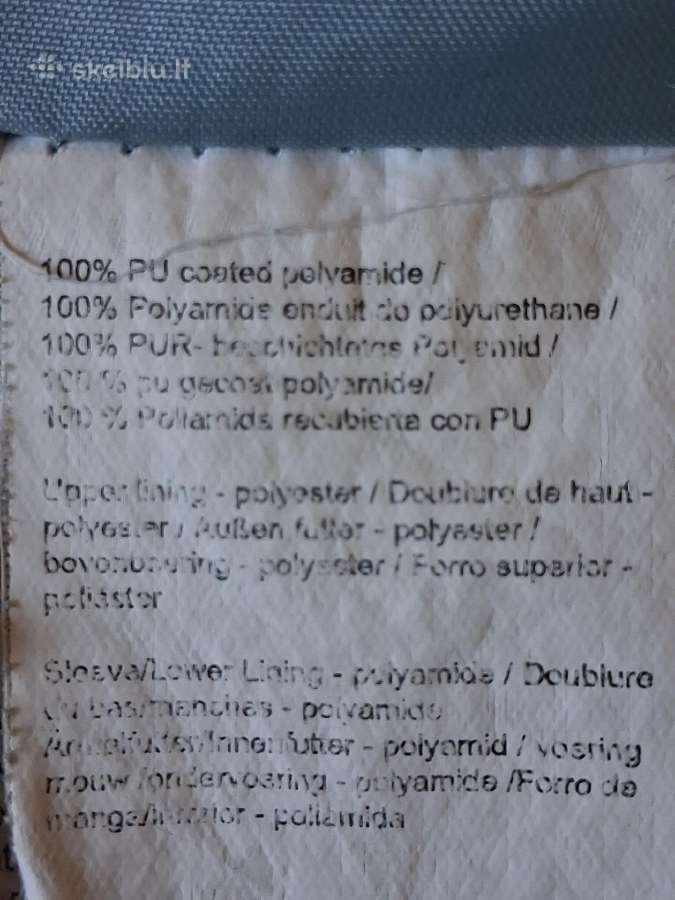 skelbiu.lt
100% PU coated polyamide /
100% Polyamide enduit de polyurethane /
100% PUR- beschichtetes Polyamid /
100 % pu gecoat polyamide/
100 % Poliamida recubierta con PU
Upper lining - polyester / Doublure de haut -
polyester / Außen futter - polyester /
bovenvoering - polyester / Forro superior -
poliéster
Sleeve/Lower Lining - polyamide / Doublure
du bas/manches - polyamide
Ärmelfutter/Innenfutter - polyamid / voering
mouw /ondervoering - polyamide /Forro de
manga/inferior - poliamida